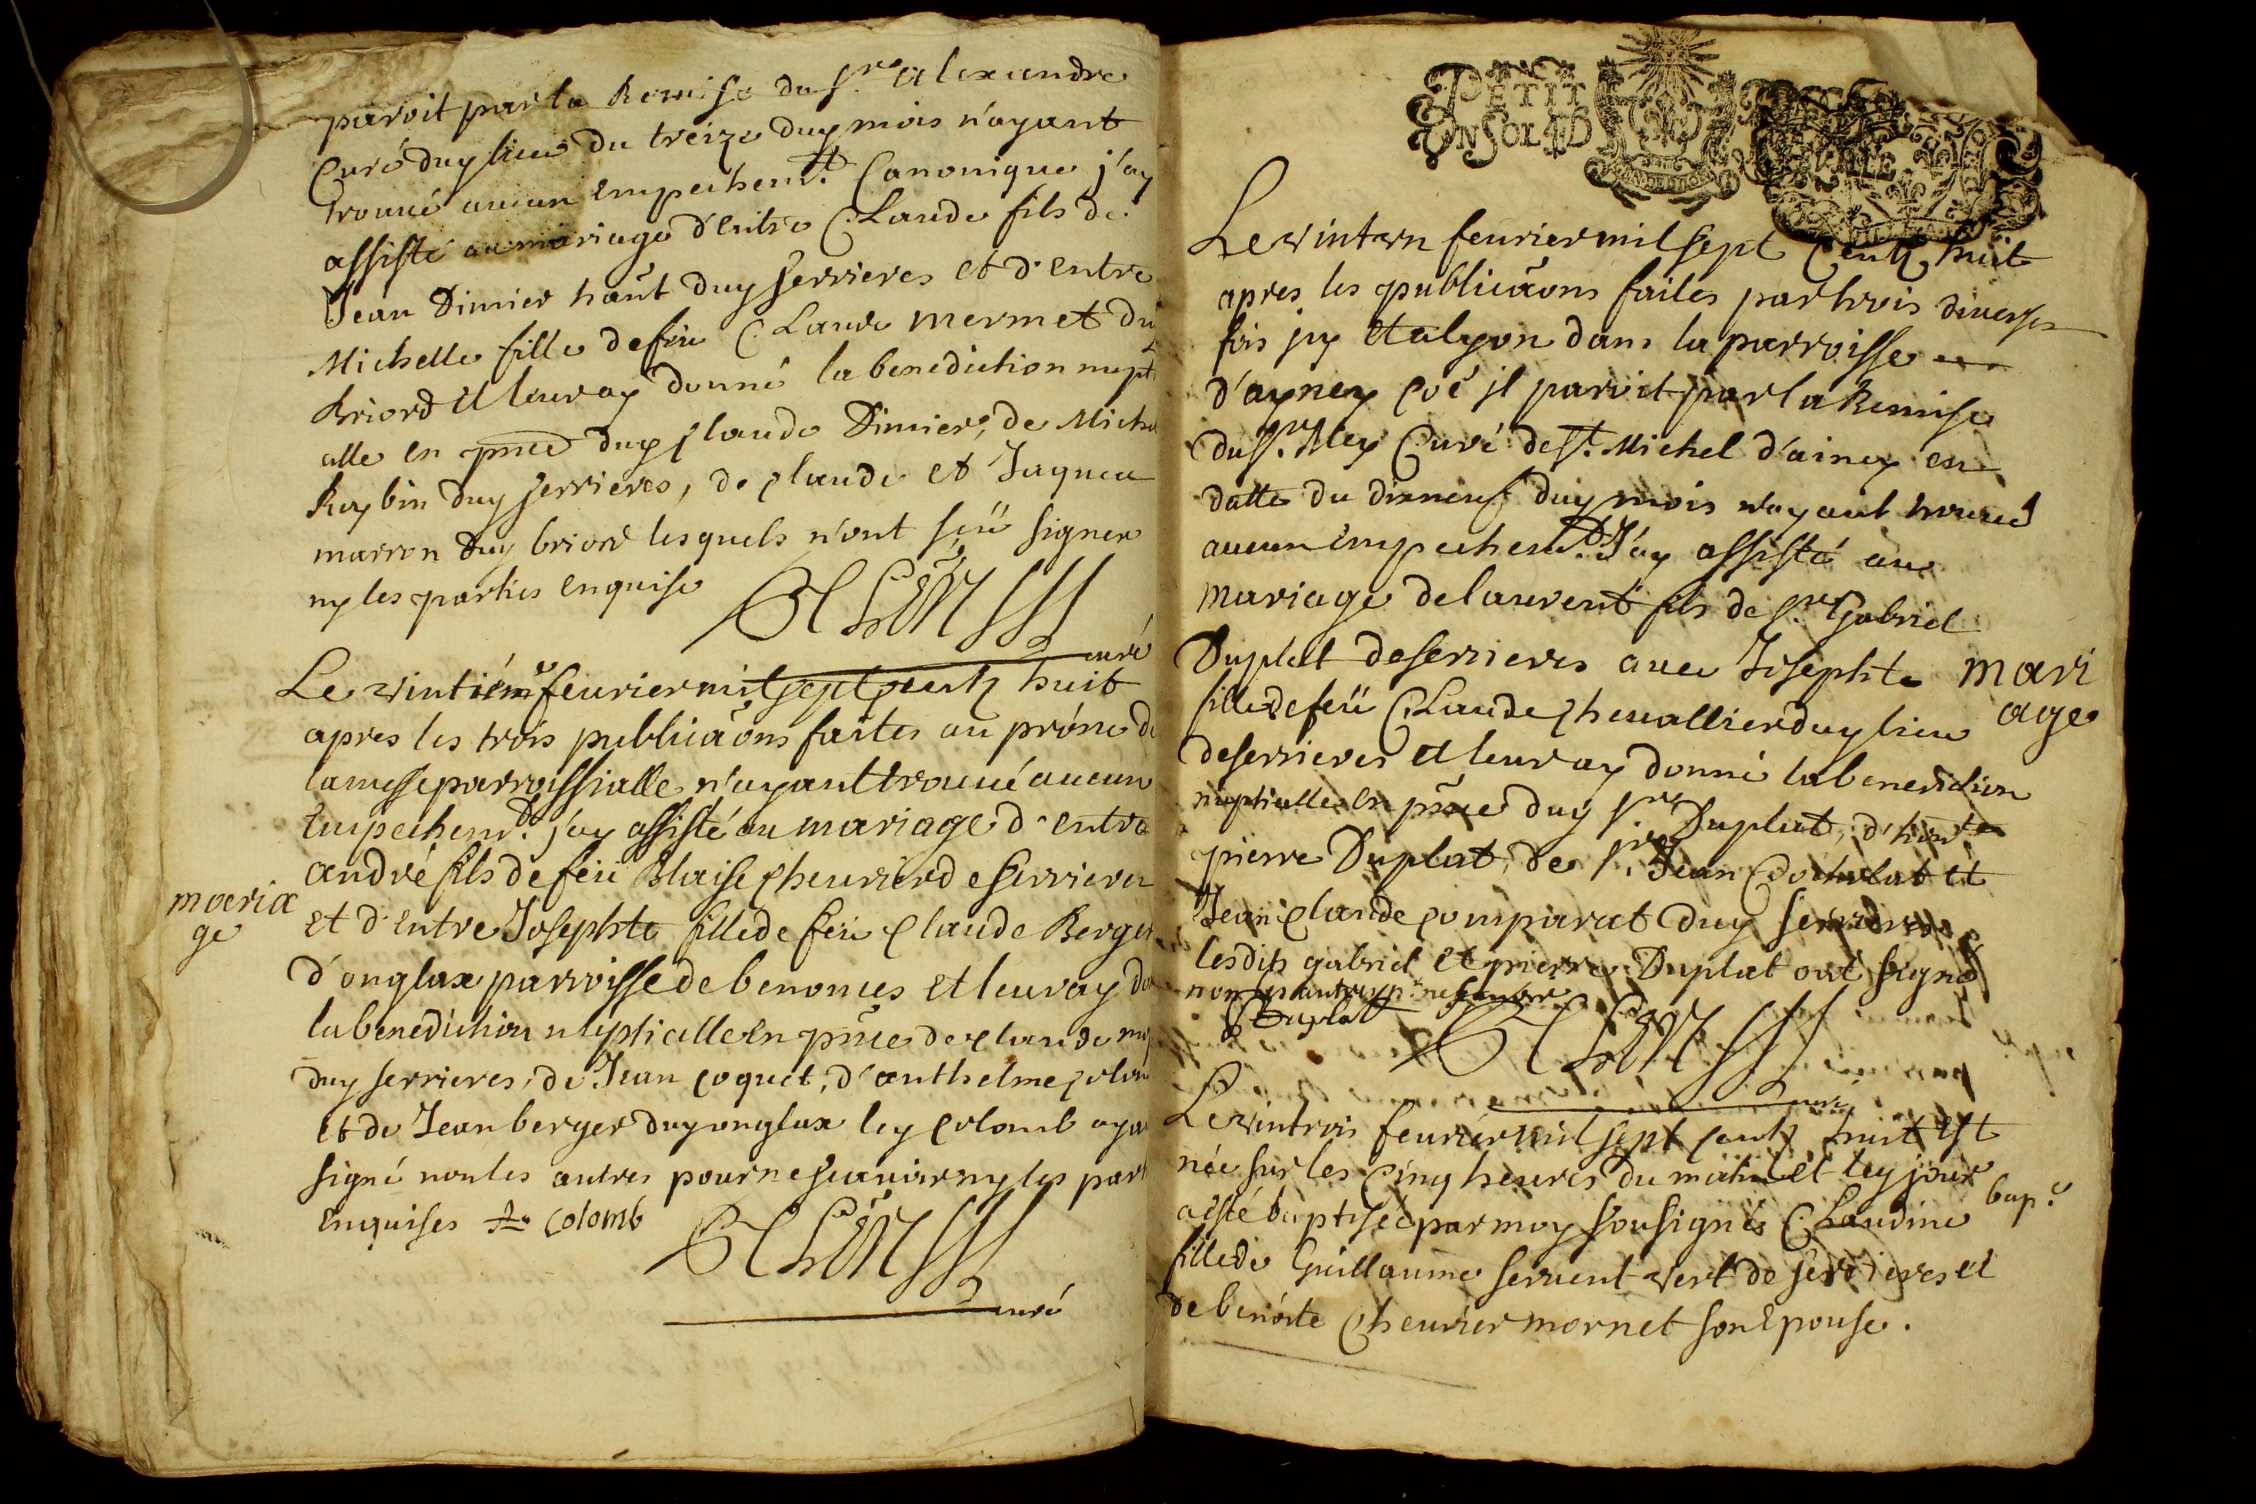 paroit par la Remise du Sr. alexandre
Curé duy lieu du treize duy mois n'ayant
trouué aucun empechemt. Canonique j'ay
assisté au mariage d'entre Claude fils de
Jean Dimier haut duy serrieres et d'entre
Michelle fille de feu Claude mermet du
Briord et leur ay donné la benediction nupti
alle en pnce duy claude Dimier, de Miche
Roybin duy serrieres, de claude et Jaques
marron duy briord lesquels n'ont sçü signer
ny les parties enquise
curé
Le vintiéme feurier mil sept centz huit
apres les trois publicãons faites au prône de
la messe parroissialle n'ayant trouué aucun
Empechemt. j'ay assisté au mariage d'entre
andré fils de feu Blaise cheurier de serrieres
et d'Entre Josephte fille de feu claude Berger
d'onglax parroisse de benonces et leur ay don
la benediction nuptialle en pñce de claude
duy serrieres, de Jean coquet, d'anthelme colom
et de Jean berger duy onglax ley colomb aya
signé non les autres pour ne sçauoir ny les part
Enquises Colomb
curé
maria
ge
PETIT
EN 4D
Le vint vn feurier mil sept Centz huit
apres les publicãons faites par trois diuerses
fois jcy et a lyon dans la parroisse
d'ayney coe il paroit par la Remise
du Sr. Rey Curé de St. Michel d'ainey en
datte du dixneuf duy mois n'ayant trouué
aucun Empechemt. J'ay assisté au
Mariage de laurent fils de Sr. Gabriel
Duplat de serrieres auec Josephte
fille de feü Claude Cheuallier duy lieu
de serrieres et leur ay donné la benediction
nuptialle en pñce duy Sr. Duplat, d'hon
pierre Duplat, de Sr. Jean Cochelat et
Jean claude comparat duy serrieres
lesdits gabriel et pierre Duplat ont signé
non les autres pr. ne sçauoir
Duplat
curé
mari
age
Le vintrois feurier mil sept centz huit est
née sur les cinq heures du matin et ley jour
a esté baptisée par moy sousigné Claudine
fille de Guillaume seruent vert de serrieres et
de benoite Cheurier mornet son Epouse.
bap.e